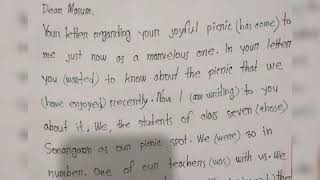 Dear Masum,
Your letter regarding your joyful picnic (has come) to
me just now as a marvelous one. In your letter
you (wanted) to know about the picnic that we
(have enjoyed) recently. Now I (am writing) to you
about it. We, the students of class seven (chose)
Sonargaon as our picnic spot. We (were) 30 in
number. One of our teachers (was) with us. We
the